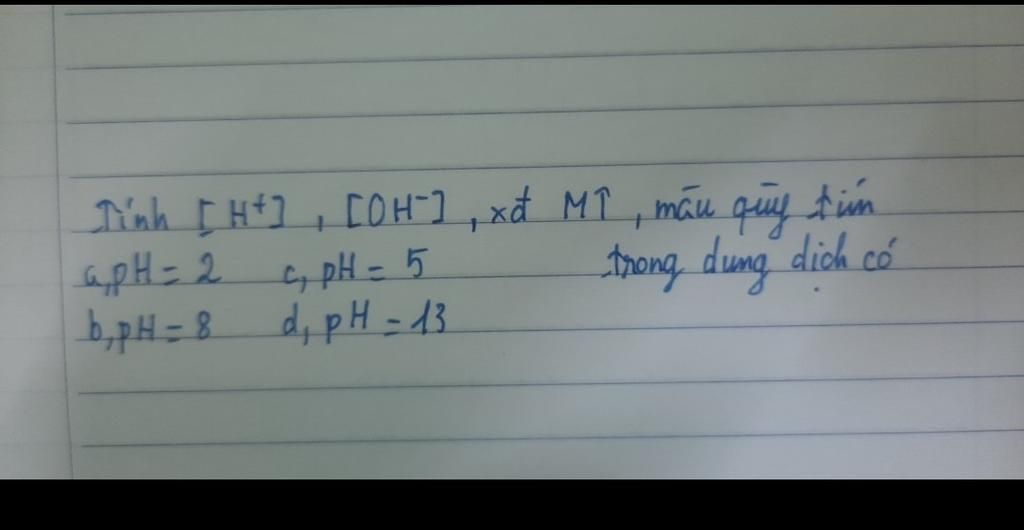 Tính [H⁺] , [OH⁻] , xđ MT , màu qùy tím
a, pH = 2 c, pH = 5 trong dung dịch có
b, pH = 8 d, pH = 13